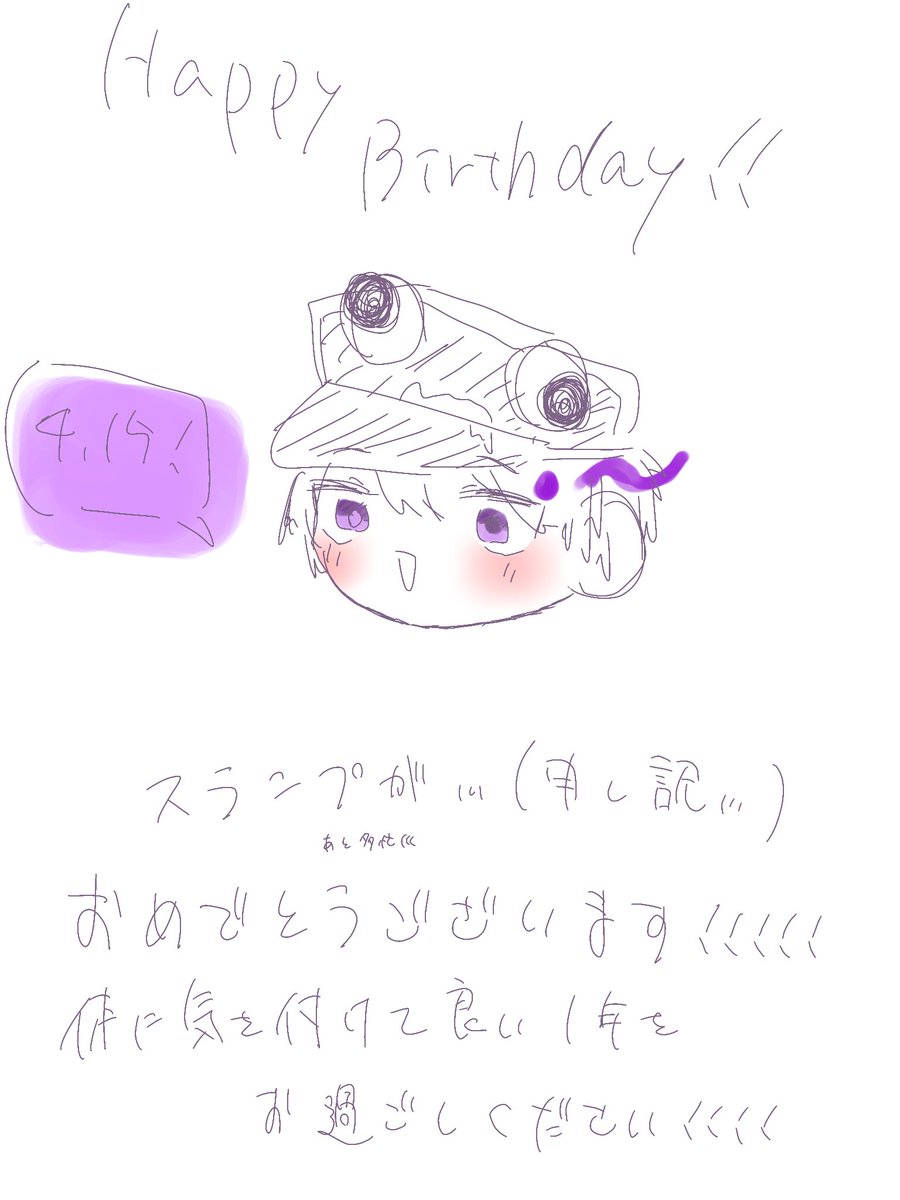 Happy
Birthday!!
4.15!
スランプが…(申し訳…)
あと多忙!!!
おめでとうございます!!!!!
体に気を付けて良い1年を
お過ごしください!!!!